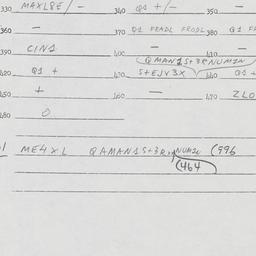 330 MAXL8E/- 340 Q1 +/- 350 -
360 - 370 Q1 FRADL FRODL 380 Q1
390 CIN1 400 - 410 -
Q MAN15+3RNUM1N
420 Q1 + 430 5+EJV3X 440 Q1 +
450 + 460 - 470 ZLO
480 0
ME4XL QAMAN15+3R,NUM1N (996
(464